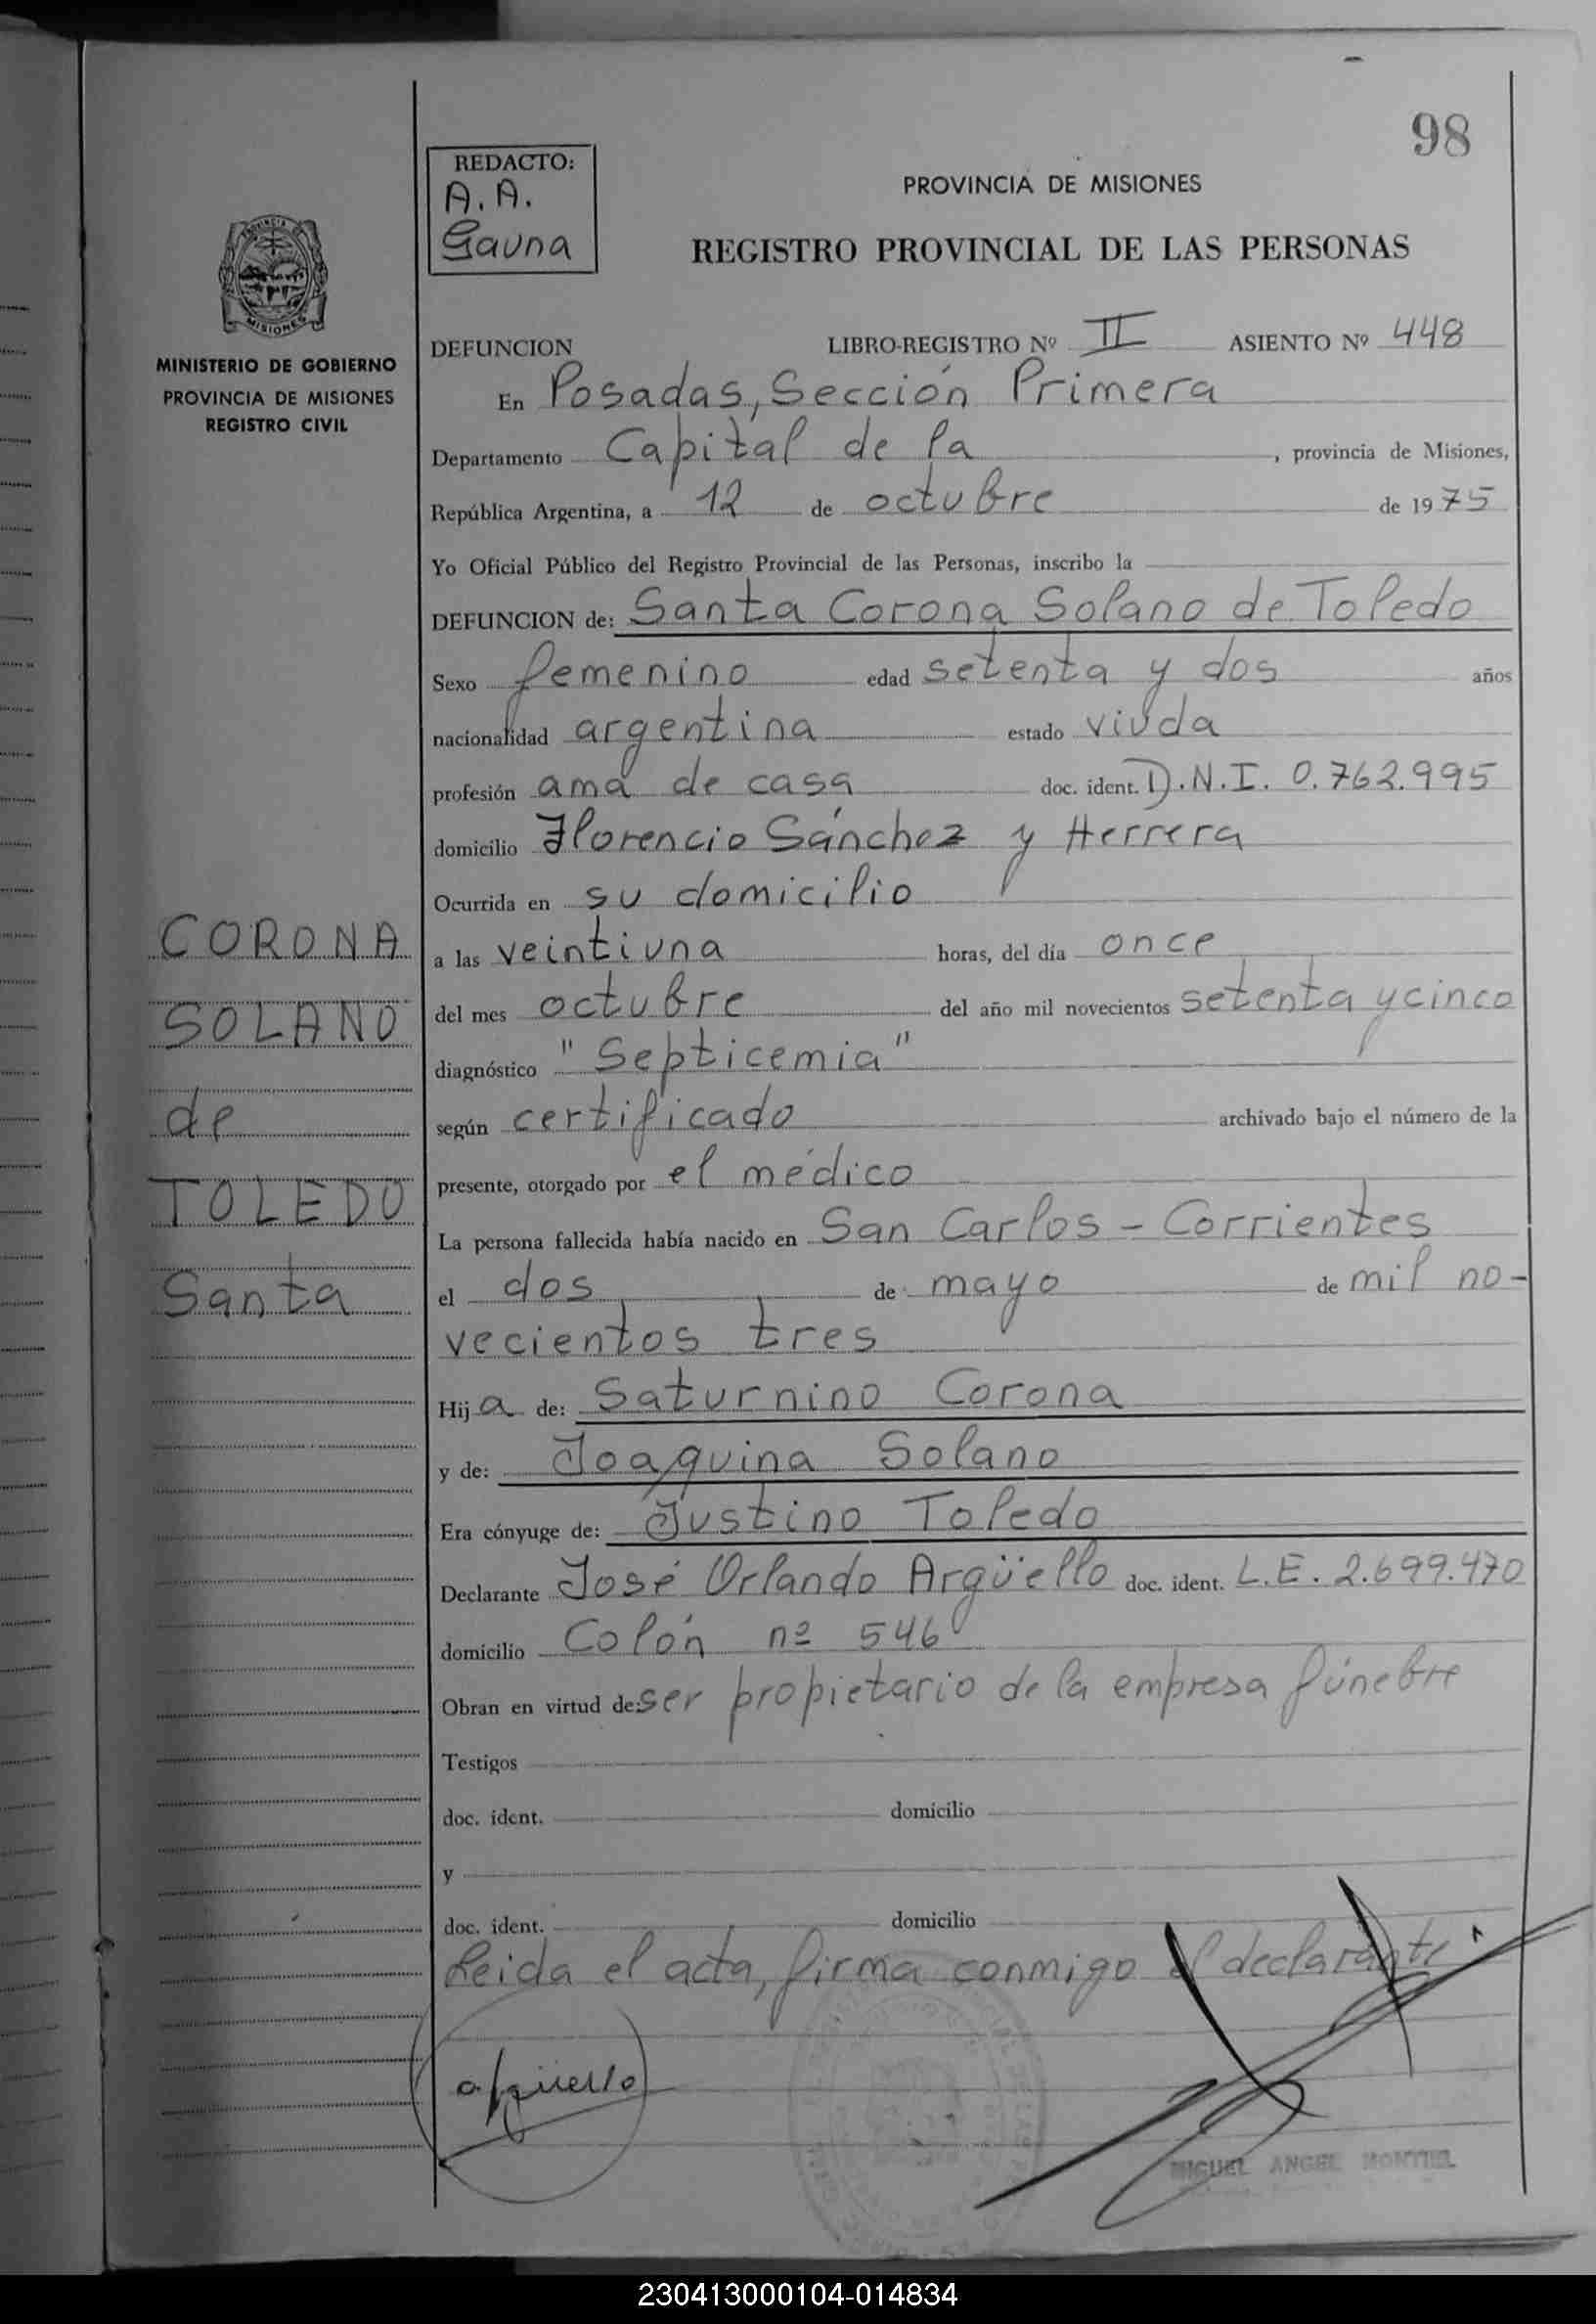 98
REDACTO:
A. A.
Gauna
PROVINCIA DE MISIONES
REGISTRO PROVINCIAL DE LAS PERSONAS
MINISTERIO DE GOBIERNO
PROVINCIA DE MISIONES
REGISTRO CIVIL
DEFUNCION LIBRO-REGISTRO Nº II ASIENTO Nº 448
En Posadas, Sección Primera
Departamento Capital de la , provincia de Misiones,
República Argentina, a 12 de octubre de 1975
Yo Oficial Público del Registro Provincial de las Personas, inscribo la
DEFUNCION de: Santa Corona Solano de Toledo
Sexo femenino edad setenta y dos años
nacionalidad argentina estado viuda
profesión ama de casa doc. ident. D.N.I. 0.762.995
domicilio Florencio Sánchez y Herrera
Ocurrida en su domicilio
a las veintiuna horas, del día once
del mes octubre del año mil novecientos setenta y cinco
diagnóstico "Septicemia"
según certificado archivado bajo el número de la
presente, otorgado por el médico
La persona fallecida había nacido en San Carlos - Corrientes
el dos de mayo de mil no-
vecientos tres
Hija de: Saturnino Corona
y de: Joaquina Solano
Era cónyuge de: Justino Toledo
Declarante José Orlando Argüello doc. ident. L.E. 2.699.470
domicilio Colón nº 546
Obran en virtud de ser propietario de la empresa fúnebre
Testigos
doc. ident. domicilio
y
doc. ident. domicilio
Leida el acta, firma conmigo el declarante
CORONA
SOLANO
de
TOLEDO
Santa
argüello
MIGUEL ANGEL MONTIEL
230413000104-014834